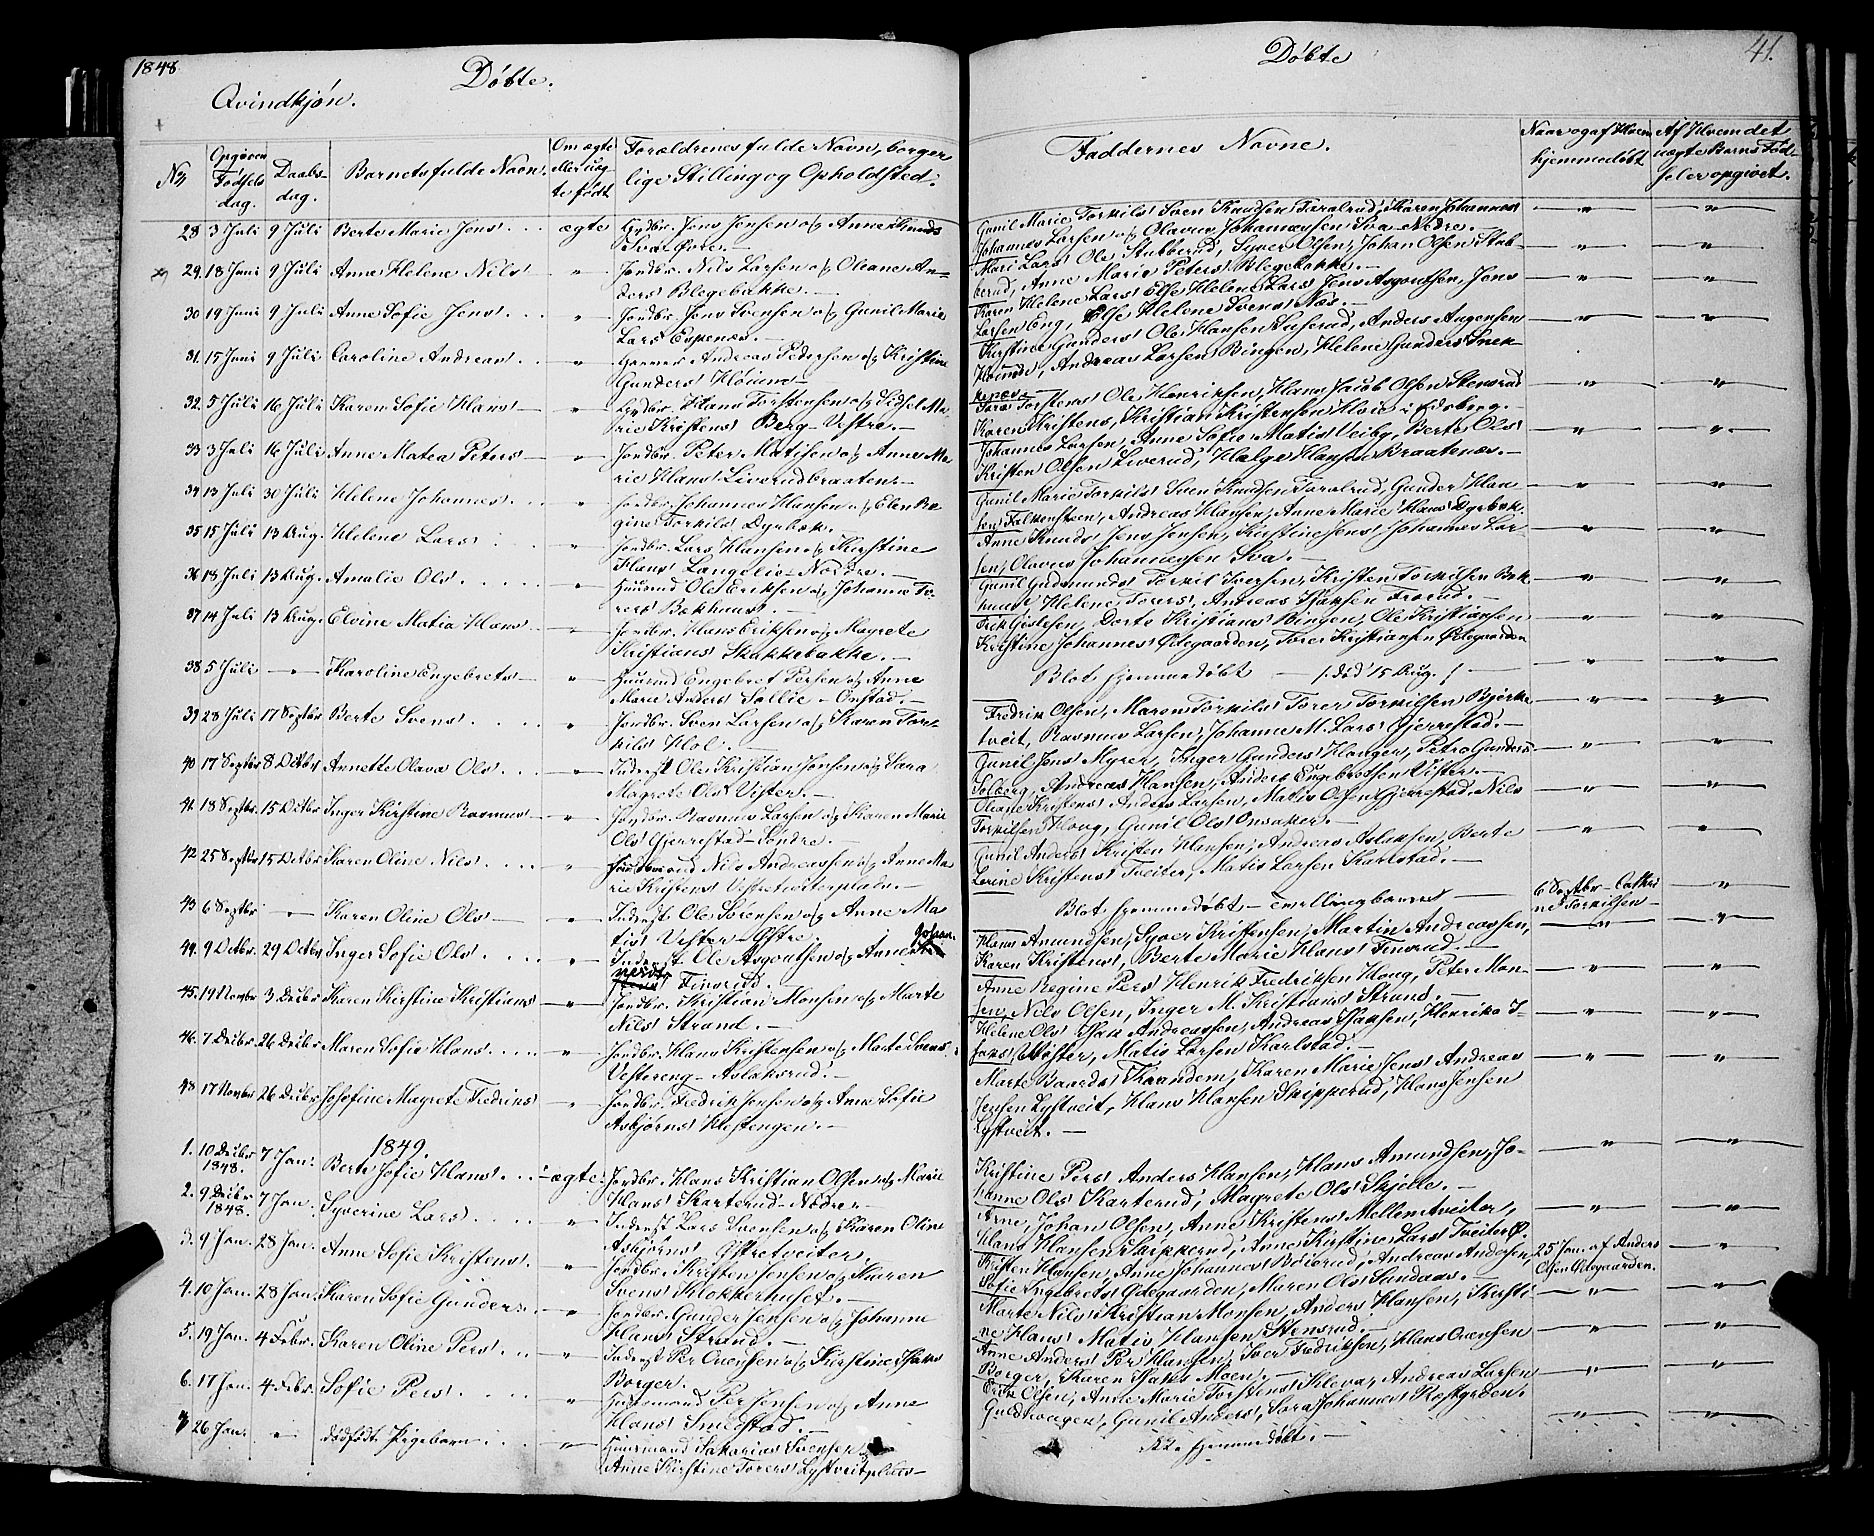 1848
Døbte.
Qvindkjøn.
No
Opgiven Fødsels dag.
Daabs-dag.
Barnets fulde Navn.
Om ægte eller uægte født
Forældrenes fulde Navn, borgerlige Stilling og Opholdsted.
28 3 Juli 9 Juli Berte Marie Jens' ægte Gdbr. Jens Jensen og Anne Knuds
Sva Øvre.
29. 18 Juni 9 Juli Anne Helene Nils' " Jordbr. Nils Larsen og Oleane An-
ders' Blegebakke.
30 19 Juni 9 Juli Anne Sofie Jens' " Jordbr. Jens Svensen og Gunil Marie
Lars' Enkenæs.
31. 15 Juni 9 Juli Caroline Andreas' " Andreas Pedersen og Kristine
Gunders'
32. 5 Juli 16 Juli Karen Sofie Hans' " Hans Torstensen og Sidsel Ma-
rie Kristens' Berg Vestre.
33 3 Juli 16 Juli Anne Matea Peters " Jordbr. Peter Matisen og Anne Ma-
rie Hans' Liverudbraaten.
34 13 Juli 30 Juli Helene Johannes' " Jordbr. Johannes Hansen og Elen Re-
gine Torkils' Dyrbæk.
35 15 Juli 13 Aug. Helene Lars' " Jordbr. Lars Hansen og Kirstine
Hans' Langelie Nordre.
36 18 Juli 13 Aug. Amalie Ols' " Huusmd Ole Eriksen og Johanne To-
rers' Bakhuus.
37 14 Juli 13 Aug. Elvine Matia Hans " Jordbr. Hans Eriksen og Magrete
Kristians' Skakkebakke.
38 5 Juli " Karoline Engebrets " Huusmd Engebret Persen og Anne
Marie Anders' Sollie Onstad.
39 28 Juli 17 Septbr Berte Svens' " Jordbr. Sven Larsen og Karen Tor-
kils' Hol.
40 17 Septbr 8 Octbr Annette Olava Ols' " Inderst Ole Kristian Jensen og Sara
Magrete Ols' Vister.
41 18 Septbr. 15 Octbr Inger Kirstine Rasmus " Jordbr. Rasmus Larsen og Karen Marie
Ols' Gjerrestad Søndre.
42 25 Septbr 15 Octbr Karen Oline Nils' " Nils Andreassen og Anne Ma-
rie Kristens' Vestretveiterplads.
43 6 Septbr " Karen Oline Ols " Inderst Ole Sørensen og Anne Ma-
tis' Vister Østre.
44. 9 Octbr. 29 Octbr Inger Sofie Ols' " Inderst Ole Asgoutsen og Anne Johan-
nesdtr Finsrud.
45. 19 Novbr 3 Decbr Karen Kirstine Kristians " Jordbr. Kristian Monsen og Marte
Nils' Strand.
46. 7 Decbr. 26 Decbr Maren Sofie Hans' " Jordbr. Hans Kristensen og Marte Svens'
Vestereng Aslaksrud.
48 17 Novbr 26 Decbr Josefine Magrete Fredriks " Jordbr. Fredrik Jensen og Anne Sofie
Asbjørns' Hestengen.
1849.
1. 10 Decbr 1848. 7 Jan. Berte Sofie Hans' ægte Jordbr. Hans Kristian Olsen og Marie
Hans' Karterud Nedre.
2. 9 Decbr 1848. 7 Jan. Syverine Lars' " Inderst Lars Svensen og Karen Oline
Asbjørns' Østretveiter.
3. 9 Jan. 28 Jan. Anne Sofie Kristens' " Jordbr. Kristen Jensen og Maren
Svens' Klokkerhuset.
4. 10 Jan. 28 Jan. Karen Sofie Gunders. " Jordbr. Gunder Jensen og Johanne
Hans' Strand.
5. 19 Jan. 4 Febr. Karen Oline Pers' " Inderst Per Ovensen og Kirstine Isaks
Borger.
6. 17 Jan. 4 Febr. Sofie Pers' " Huusmand Per Jensen og Anne
Hans' Smedstad.
7 26 Jan. " dødfødt Pigebarn " Huusmand Sakarias Svensen og
Anne Kirstine Torers' Lystveitplads
Døbte
41.
Faddernes Navne.
Naar og af Hvem hjemmedøbt
Af Hvem det uægte Barns Fødsel er opgivet.
Gunil Marie Torkils' Sven Knudsen Taralrud, Karen Johannes
Johannes Larsen og Olavus Johannesen Sva Nedre.
Mari Lars' Ole Stubberud, Syver Olsen, Johan Olsen Stub-
berud, Anne Marie Peters' Blegebakke.
Karen Helene Lars' Else Helene Lars' Jens Asgoutsen, Jens
Larsen Eng, Else Helene Svens' Næs.
Kirstine Gunders' Ole Hansen Anders Augensen
Andreas Larsen Bingen, Helene Gunders' Snek-
kenæs.
Ole Henriksen, Hans Jacob Olsen Stensrud
Karen Kristens', Kristian Kristensen Hvie i Eidsberg.
Johannes Larsen, Anne Sofie Matis' Veiby, Berte Ols'
Kristen Olsen Liverud, Helge Hansen Kraatenæs.
Gunil Marie Torkils' Sven Knudsen Taralrud, Gunder Han-
sen Falkensteen, Andreas Hansen, Anne Marie Hans' Dyrebæk.
Anne Knuds' Jens Jensen, Kirstine Jens', Johannes Lar-
sen, Olavus Johannesen Sva.
Gunil Gudmunds' Torkil Iversen, Kristen Torkilsen Bak-
huus, Helene Torers', Andreas Isaksen Frorud.
Erik Gjulsen, Dorte Kristians' Bingen, Ole Kristiansen
Kirstine Johannes' Ødegaarden, Torer Kristiansen Ødegaarden
Blot hjemmedøbt (død 15 Aug.)
Fredrik Olsen, Maren Torkils' Torer Torkilsen Bjerke-
tveit, Rasmus Larsen, Johanne M. Lars' Gjerrestad.
Gunil Jens' Myrer, Inger Gunders' Hauger, Petra Gunders
Solberg, Andreas Hansen, Anders Engebretsen Vister.
Oleane Kristens' Anders Larsen, Matis Olsen Gjerrestad, Nils
Torkilsen Houg, Gunil Ols' Onsaker.
Gunil Anders' Kristen Hansen, Andreas Aslaksen, Berte
Lorine Kristens' Tveiter, Matis Larsen Karlstad.
Blot hjemmedøbt Tvillingbarnet 6 Septbr Cathri-
ne Torkilsen
Hans Amundsen, Syver Kristensen, Martin Andreassen,
Karen Kristens', Berte Marie Hans' Finsrud.
Anne Regine Pers' Henrik Fredriksen Houg, Peter Mon-
sen, Nils Olsen, Inger M. Kristians' Strand.
Helene Ols' Isak Andreassen, Andreas Isaksen, Henrike I-
saks' Vister, Matis Larsen Karlstad.
Marte Baards' Kraandem, Karen Marie Jens' Andreas
Jensen Lystveit, Hans Hansen Skipperud, Hans Jensen
Lystveit.
Kirstine Pers' Anders Hansen, Hans Amundsen, Jo-
hanne Ols' Karterud, Magrete Ols' Skjelle.
Arne, Johan Olsen, Anne Kristens' Mellemtveiter,
Hans Hansen Skipperud, Anne Kirstine Lars' Tveiter Ø.
Kristen Hansen, Anne Johannes' Bøierud, Andreas Andersen, 25 Jan. af Anders
Sofie Engebrets' Ødegaarden, Maren Ols' Sandaas. Olsen Ødegaarden.
Marte Nils' Kristian Monsen, Anders Hansen, Kirsti-
ne Hans' Matis Hansen Stensrud.
Anne Anders' Per Hansen, Iver Fredriksen, Hans Ovensen
Borger, Karen Isaks' Moen.
Erik Olsen, Anne Marie Torstens' Kleva, Andreas Larsen
Guldhaugen, Gunil Anders', Sara Johannes'
Ikke hjemmedøbt.